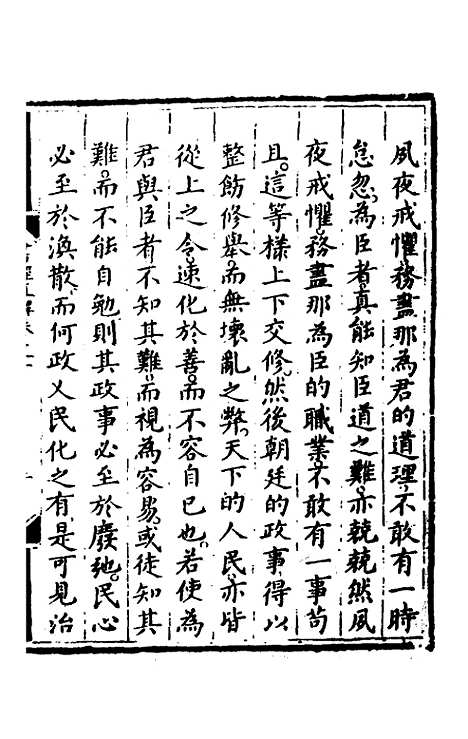 夙夜戒懼務盡那為君的道理不敢有一時
怠忽為臣者真能知臣道之難亦兢兢然夙
夜戒懼務盡那為臣的職業不敢有一事苟
且這等樣上下交修然後朝廷的政事得以
整飭修舉而無壞亂之弊天下的人民亦皆
從上之令速化於善而不容自已也若使為
君與臣者不知其難而視為容易或徒知其
難而不能自勉則其政事必至於廢弛民心
必至於渙散而何政乂民化之有是可見治